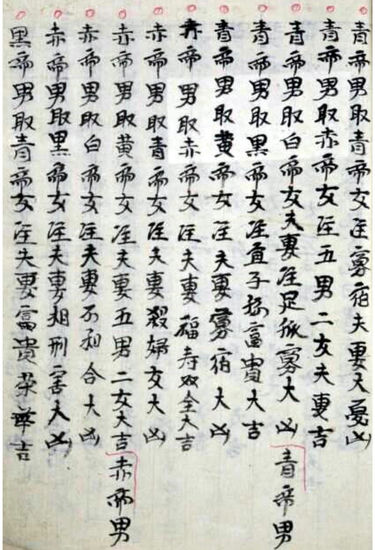 青帝男取青帝女注寡宿夫妻大憂凶
青帝男取赤帝女注五男二女夫妻吉
青帝男取白帝女夫妻注足孤寡大凶
青帝男
青帝男取黑帝女注宜子孫富貴大吉
青帝男取黄帝女注夫妻寡宿大凶
赤帝男取赤帝女注夫妻福寿双全大吉
赤帝男取青帝女注夫妻殺婦女大凶
赤帝男取黄帝女注夫妻五男二女大吉
赤帝男
赤帝男取白帝女注夫妻不和合大凶
赤帝男取黑帝女注夫妻相刑害大凶
黑帝男取青帝女注夫妻富貴榮華吉